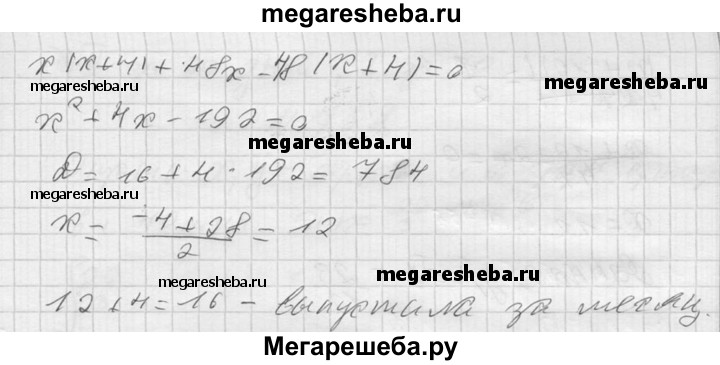 megaresheba.ru
x(x+4)+48x-48(x+4)=0
megaresheba.ru
megaresheba.ru
x²+4x-192=0
megaresheba.ru
D=16+4·192=784
megaresheba.ru
x=(-4+28)/2=12
megaresheba.ru
megaresheba.ru
12+4=16 - выпустила за месяц.
Мегарешеба.ру